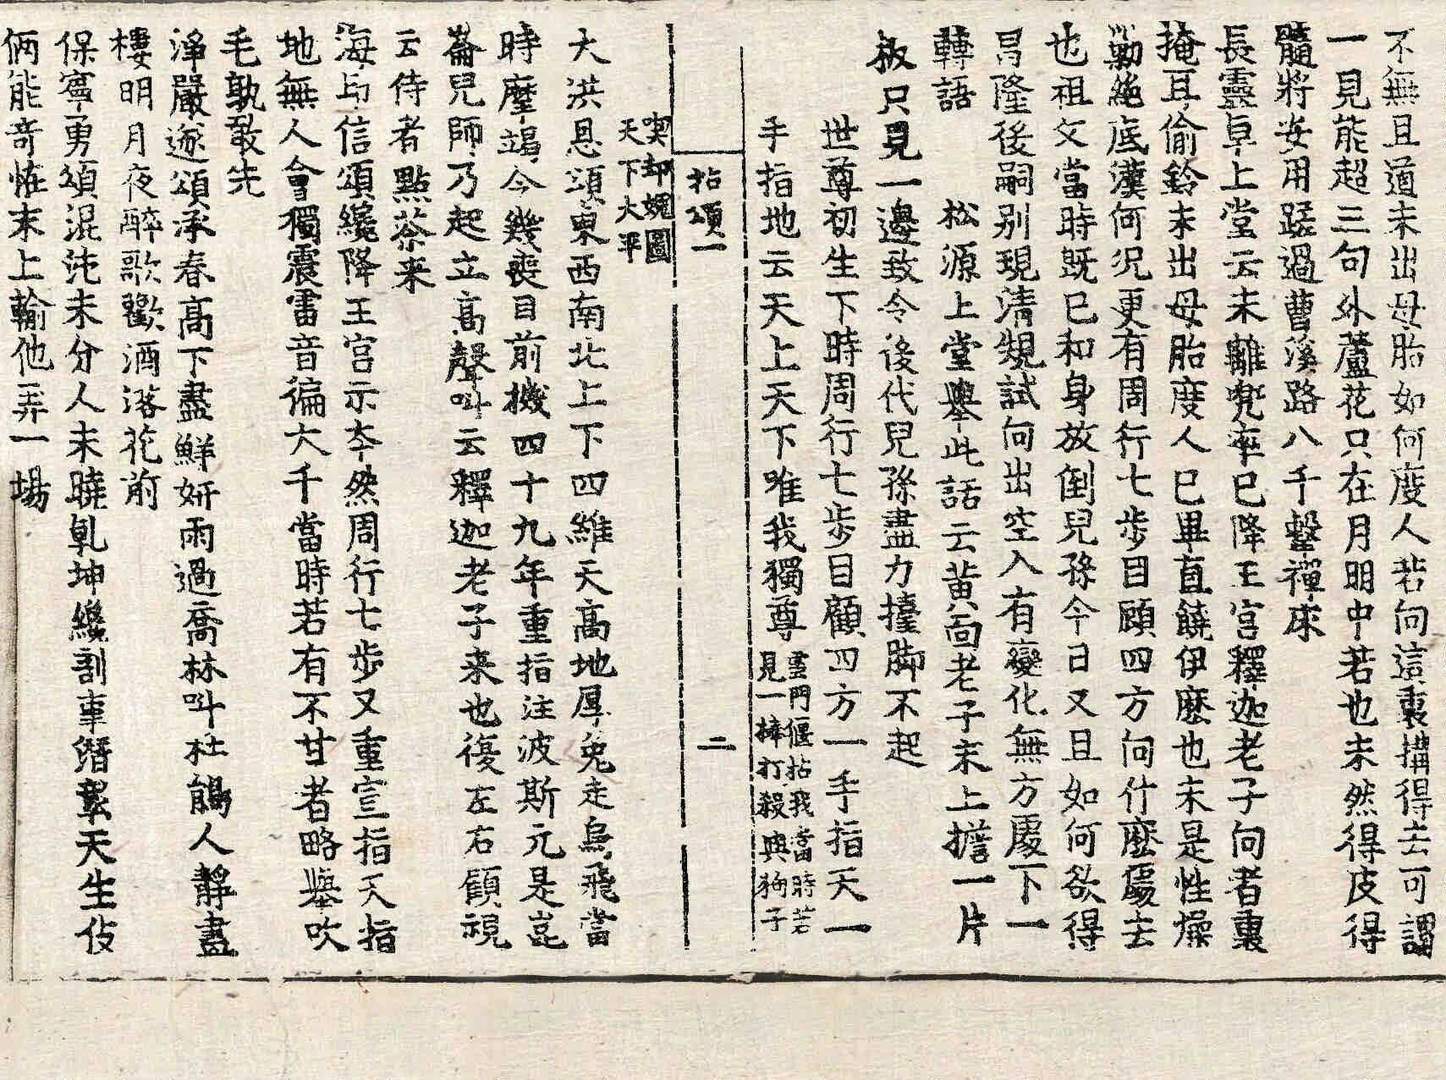 不無且道未出母胎如何度人若向這裏搆得去可謂
一見能超三句外蘆花只在月明中若也未然得皮得
髓將安用蹉過曹溪路八千擊禪床
長靈卓上堂云未離兜率已降王宮釋迦老子向者裏
掩耳偷鈴未出母胎度人已畢直饒伊麽也未是性燥
勦絶底漢何況更有周行七步目顧四方向什麽處去
也祖父當時既已和身放倒兒孫今日又且如何欲得
昌隆後嗣別現清規試向出空入有變化無方處下一
轉語　松源上堂擧此話云黃面老子末上擔一片
板只見一邊致令後代兒孫盡力擡脚不起
世尊初生下時周行七步目顧四方一手指天一
手指地云天上天下唯我獨尊
雲門偃拈我當時若
見一棒打殺與狗子
拈頌一　二
喫却媿圖
天下大平
大洪恩頌東西南北上下四維天高地厚兔走烏飛當
時摩竭今幾喪目前機四十九年重指注波斯元是崑
崙兒師乃起立高聲叫云釋迦老子来也復左右顧視
云侍者點茶来
海印信頌纔降王宮示本然周行七步又重宣指天指
地無人會獨震雷音徧大千當時若有不甘者略擧吹
毛孰敢先
淨嚴遂頌承春高下盡鮮妍雨過喬林叫杜鵑人靜畫
樓明月夜醉歌歡酒落花前
保寧勇頌混沌未分人未曉乹坤纔剖事潛彰天生伎
倆能奇怪末上輸他弄一場